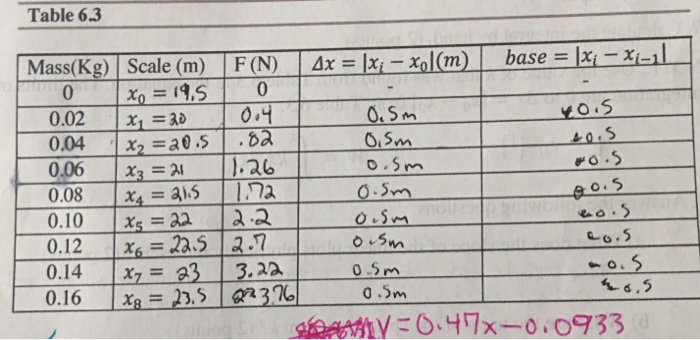 Table 6.3
Mass(Kg) Scale (m) F (N) Δx = |xᵢ − x₀|(m) base = |xᵢ − xᵢ₋₁|
0 x₀ = 19,5 0 -
0.02 x₁ = 20 0.4 0.5m 0.5
0.04 x₂ = 20.5 .82 0.5m 0.5
0.06 x₃ = 21 1.26 0.5m 0.5
0.08 x₄ = 21.5 1.72 0.5m 0.5
0.10 x₅ = 22 2.2 0.5m 0.5
0.12 x₆ = 22.5 2.7 0.5m 0.5
0.14 x₇ = 23 3.22 0.5m 0.5
0.16 x₈ = 23.5 3.76 0.5m 0.5
y = 0.47x - 0.0933